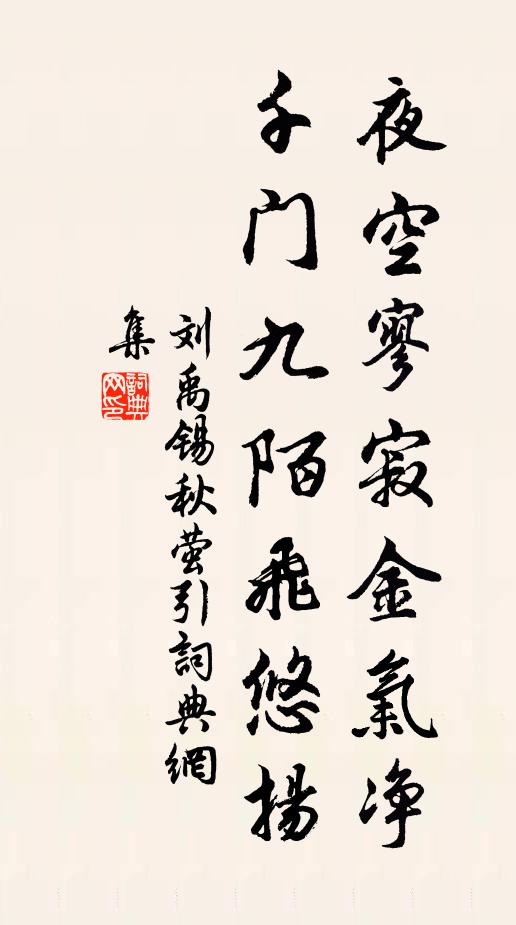 夜空寥寂金氣净
千门九陌飛悠揚
刘禹锡秋萤引詞典網
集
詞典网印